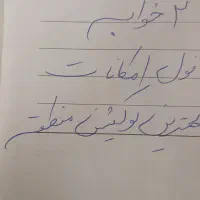 ۲ خوابه
فول امکانات
بهترین لوکیشن منطقه